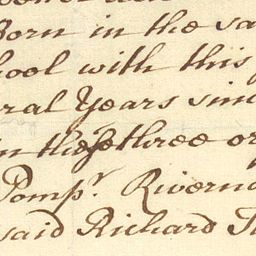 Born in the sa
ool with this
ral Years sin
in these three or
Pomp.r Riverno
said Richard